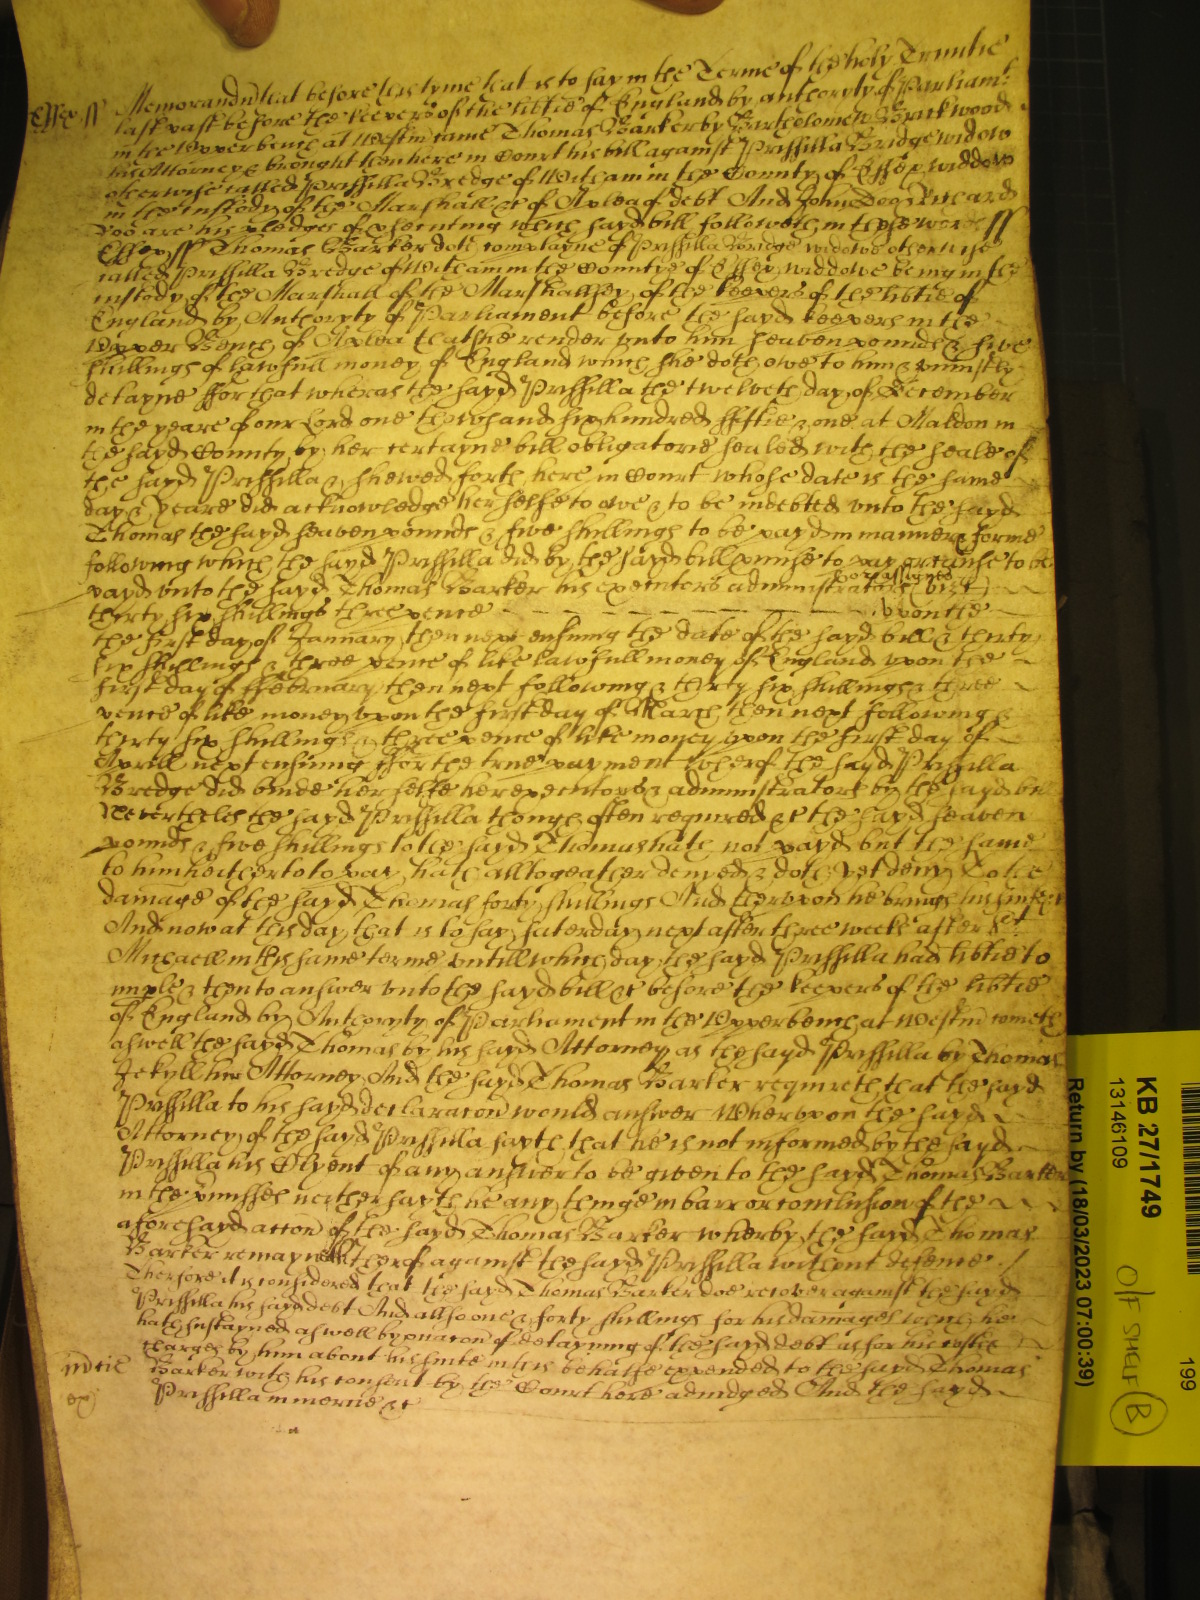 Essex ss Memorandu that before this tyme that is to say in the Terme of the holy Trinitie
last past before the keepers of the libtie of England by authoryty of Parliamt
in the Upper bench at Westm came Thomas Barker by Bartholomew Brickwood
his Attorney & brought then here in Court his bill against Prissilla Bridge widow
otherwise called Prissilla Bredge of Witham in the County of Essex widdow
in the custody of the Marshall &c of A plea of debt And John Doo & Richard
Roo are his pledges of p'secuting which sayd bill followeth in these words ss
Essex ss Thomas Barker doth complayne of Prissilla Bridge widowe otherwise
called Prissilla Bredge of Witham in the Countye of Essex widdowe being in the
custody of the Marshall of the Marshallsey of the keepers of the libtie of
England by Authoryty of Parliament before the sayd keepers in the
Upper Bench of A plea that she render unto him seaven pounds & five
shillings of lawfull money of England which she doth owe to him & uniustly
detayne ffor that wheras the sayd Prissilla the twelveth day of December
in the yeare of our Lord one thowsand six hundred fiftie & one at Maldon in
the sayd County by her certayne bill obligatorie sealed with the seale of
the sayd Prissilla & shewed forth here in Court whose date is the same
day & yeare did acknowledge her selfe to owe & to be indebted unto the sayd
Thomas the sayd seaven pounds & five shillings to be payd in manner & forme
following which the sayd Prissilla did by the sayd bill p'mise to pay or cause to be
payd unto the sayd Thomas Barker his executors administrators or assignes (vizt)
thirty six shillings three pence upon the
the first day of January then next ensuing the date of the sayd bill & thirty
six shillings & three pence of like lawfull money of England upon the
first day of ffebruary then next following & thirty six shillings & three
pence of like money upon the first day of March then next following &
thirty six shillings & three pence of like money upon the first day of
Aprill next ensuing ffor the true payment wherof the sayd Prissilla
Bredge did binde her selfe her executors & administrators by the sayd bill
Neverthelesse the sayd Prissilla though often required &c the sayd seaven
pounds & five shillings to the sayd Thomas hath not payd but the same
to him hitherto to pay hath alltogeather denyed & doth yet deny To the
damage of the sayd Thomas forty shillings And therupon he brings his suite &c
And now at this day that is to say saterday next after three weekes after St
Michaell in this same terme untill which day the sayd Prissilla had libtie to
imple & then to answer unto the sayd bill &c before the keepers of the libtie
of England by Authoryty of Parliament in the Upper bench at Westm cometh
as well the sayd Thomas by his sayd Attorney as the sayd Prissilla by Thomas
Jekyll her Attorney And the sayd Thomas Barker requireth that the sayd
Prissilla to his sayd declaracon would answer Wherupon the sayd
Attorney of the sayd Prissilla sayth that he is not informed by the sayd
Prissilla his Clyent of any answer to be given to the sayd Thomas Barker
in the p'misses neither sayth he any thinge in barr or conclusion of the
aforesayd accon of the sayd Thomas Barker wherby the sayd Thomas
Barker remayneth therof against the sayd Prissilla without defence /
Therfore it is considered that the sayd Thomas Barker doe recover against the sayd
Prissilla his sayd debt And allso one & forty shillings for his damages which he
hath sustayned aswell by occasion of detayning of the sayd debt as for his costs
charges by him about his suite in this behalfe expended to the sayd Thomas
Barker with his consent by the Court here adiudged And the sayd
Prissilla in mercie &c
KB 27/1749
13146109
Return by (18/03/2023 07:00:39)
199
O/F SHELF B